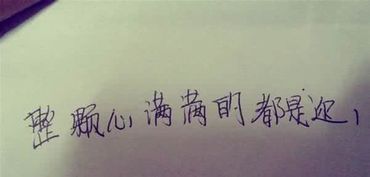 整颗心满满的都是迩，